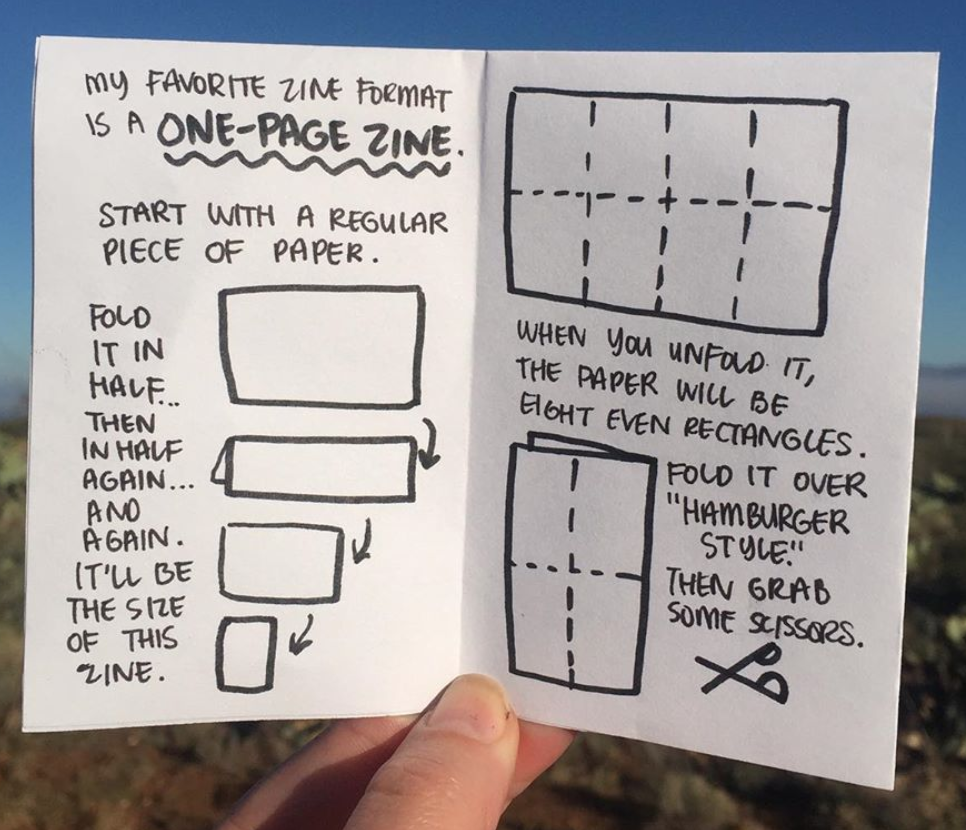 MY FAVORITE ZINE FORMAT
IS A ONE-PAGE ZINE.
START WITH A REGULAR
PIECE OF PAPER.
FOLD
IT IN
HALF...
THEN
IN HALF
AGAIN...
AND
AGAIN.
IT'LL BE
THE SIZE
OF THIS
ZINE.
WHEN YOU UNFOLD IT,
THE PAPER WILL BE
EIGHT EVEN RECTANGLES.
FOLD IT OVER
"HAMBURGER
STYLE."
THEN GRAB
SOME SCISSORS.